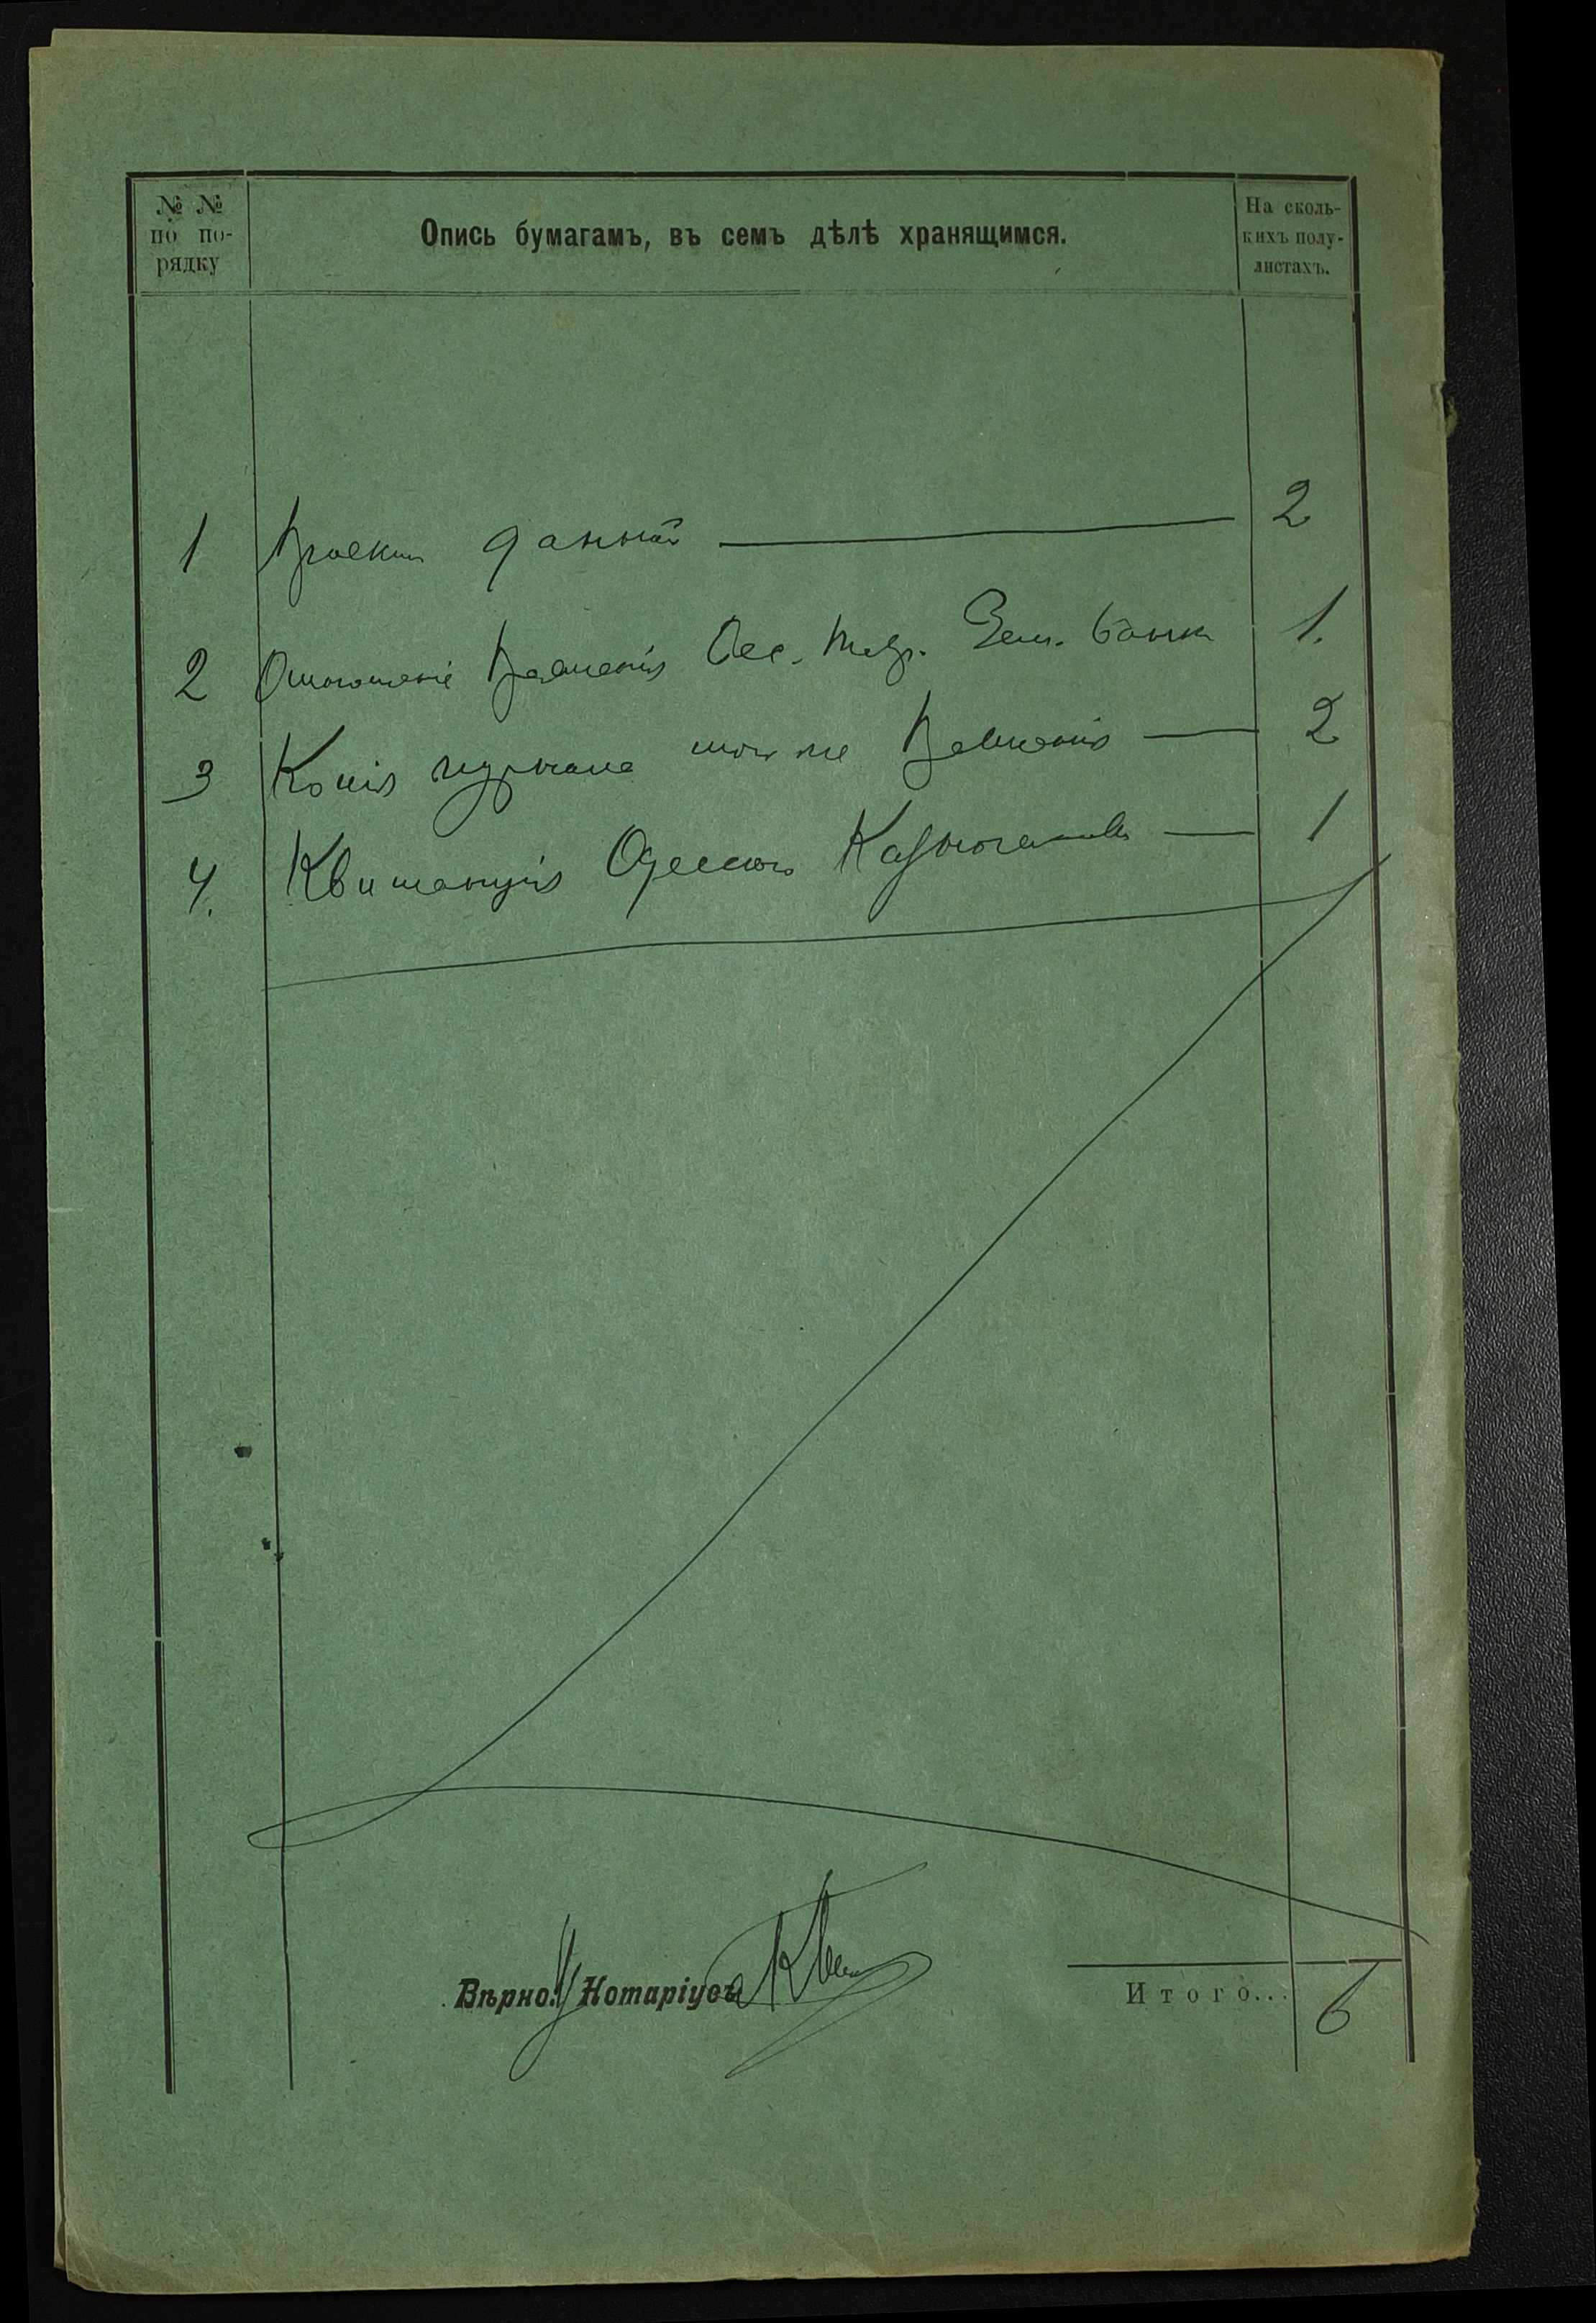 № №
по по-
рядку
Опись бумагамъ, въ семъ дѣлѣ хранящимся.
На сколь-
кихъ полу-
листахъ.
1 Проектъ данной 2
2 Отношеніе Правленія Бес. Тавр. Зем. Банка 1.
3 Копія журнала того же Правленія 2
4. Квитанція Одесскаго Казначейства 1
Вѣрно. Нотаріусъ
Итого... 6